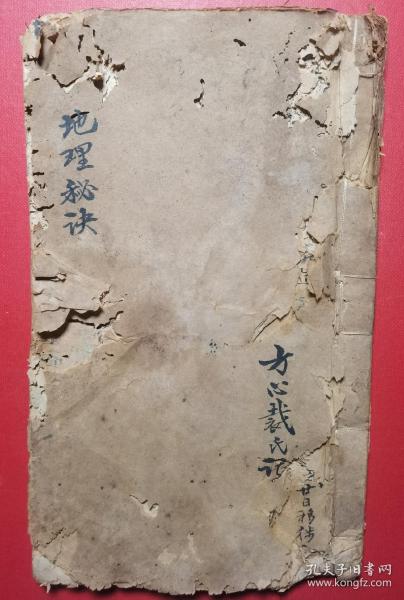 地理秘诀
方心裁氏记
廿日移
孔夫子旧书网
www.kongfz.com